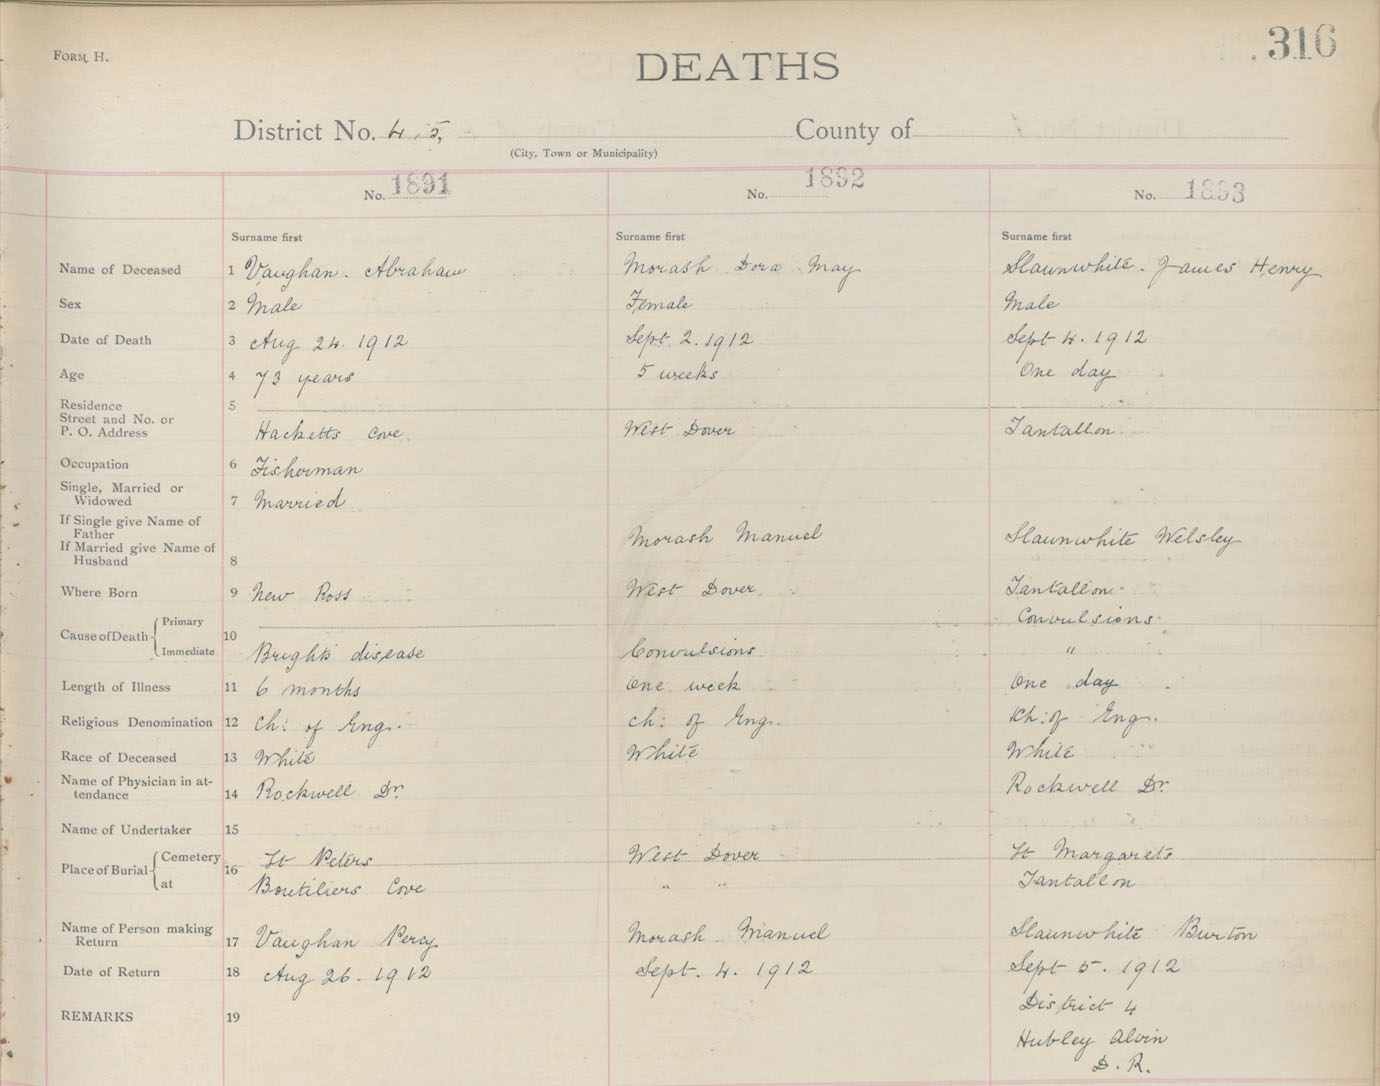 Form H.
DEATHS
316
District No. 4, 5, County of
(City, Town or Municipality)
No. 1891 No. 1892 No. 1893
Surname first Surname first Surname first
Name of Deceased 1 Vaughan. Abraham Morash Dora May Slaunwhite. James Henry
Sex 2 Male Female Male
Date of Death 3 Aug 24. 1912 Sept 2. 1912 Sept 4. 1912
Age 4 73 years 5 weeks One day
Residence 5
Street and No. or
P. O. Address Hacketts Cove West Dover Tantallon
Occupation 6 Fisherman
Single, Married or
Widowed 7 Married
If Single give Name of
Father Morash Manuel Slaunwhite Welsley
If Married give Name of
Husband 8
Where Born 9 New Ross West Dover Tantallon
Cause of Death Primary 10 Convulsions
Immediate Brights disease Convulsions "
Length of Illness 11 6 months One week One day
Religious Denomination 12 Ch: of Eng. Ch: of Eng. Ch: of Eng.
Race of Deceased 13 White White White
Name of Physician in at-
tendance 14 Rockwell Dr. Rockwell Dr.
Name of Undertaker 15
Place of Burial Cemetery 16 St Peters West Dover St Margarets
at Boutiliers Cove " " Tantallon
Name of Person making
Return 17 Vaughan Percy Morash Manuel Slaunwhite Burton
Date of Return 18 Aug 26. 1912 Sept. 4. 1912 Sept 5. 1912
District 4
REMARKS 19
Hubley Alvin
D. R.